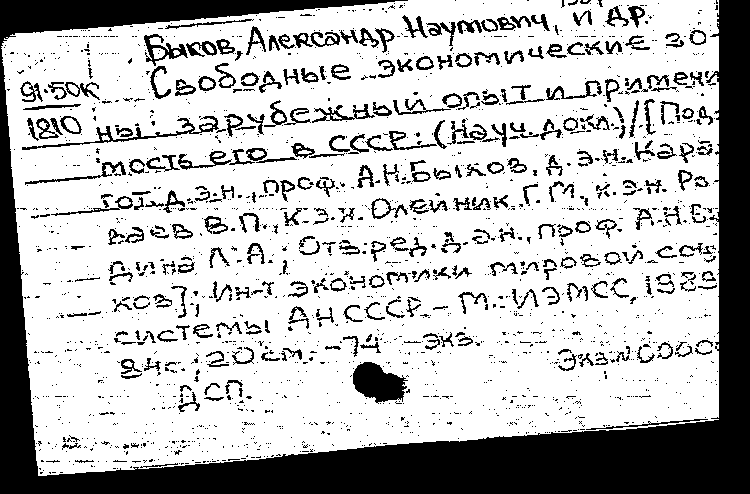 Быков, Александр Наумович, и др.
91-50к Свободные экономические зо-
1810 ны: зарубежный опыт и примени-
мость его в СССР: (Науч. докл.)/[Под-
гот. д.э.н., проф. А.Н.Быков, д.э.н. Кара-
ваев В.П., к.э.н. Олейник Г.М., к.э.н. Ро-
дина Л.А.; Отв. ред. д.э.н., проф. А.Н.Бы-
ков]; Ин-т экономики мировой соц.
системы АН СССР. - М.: ИЭМСС, 1989
84с.; 20см. - 74 экз.
Экз. N 0000
ДСП.